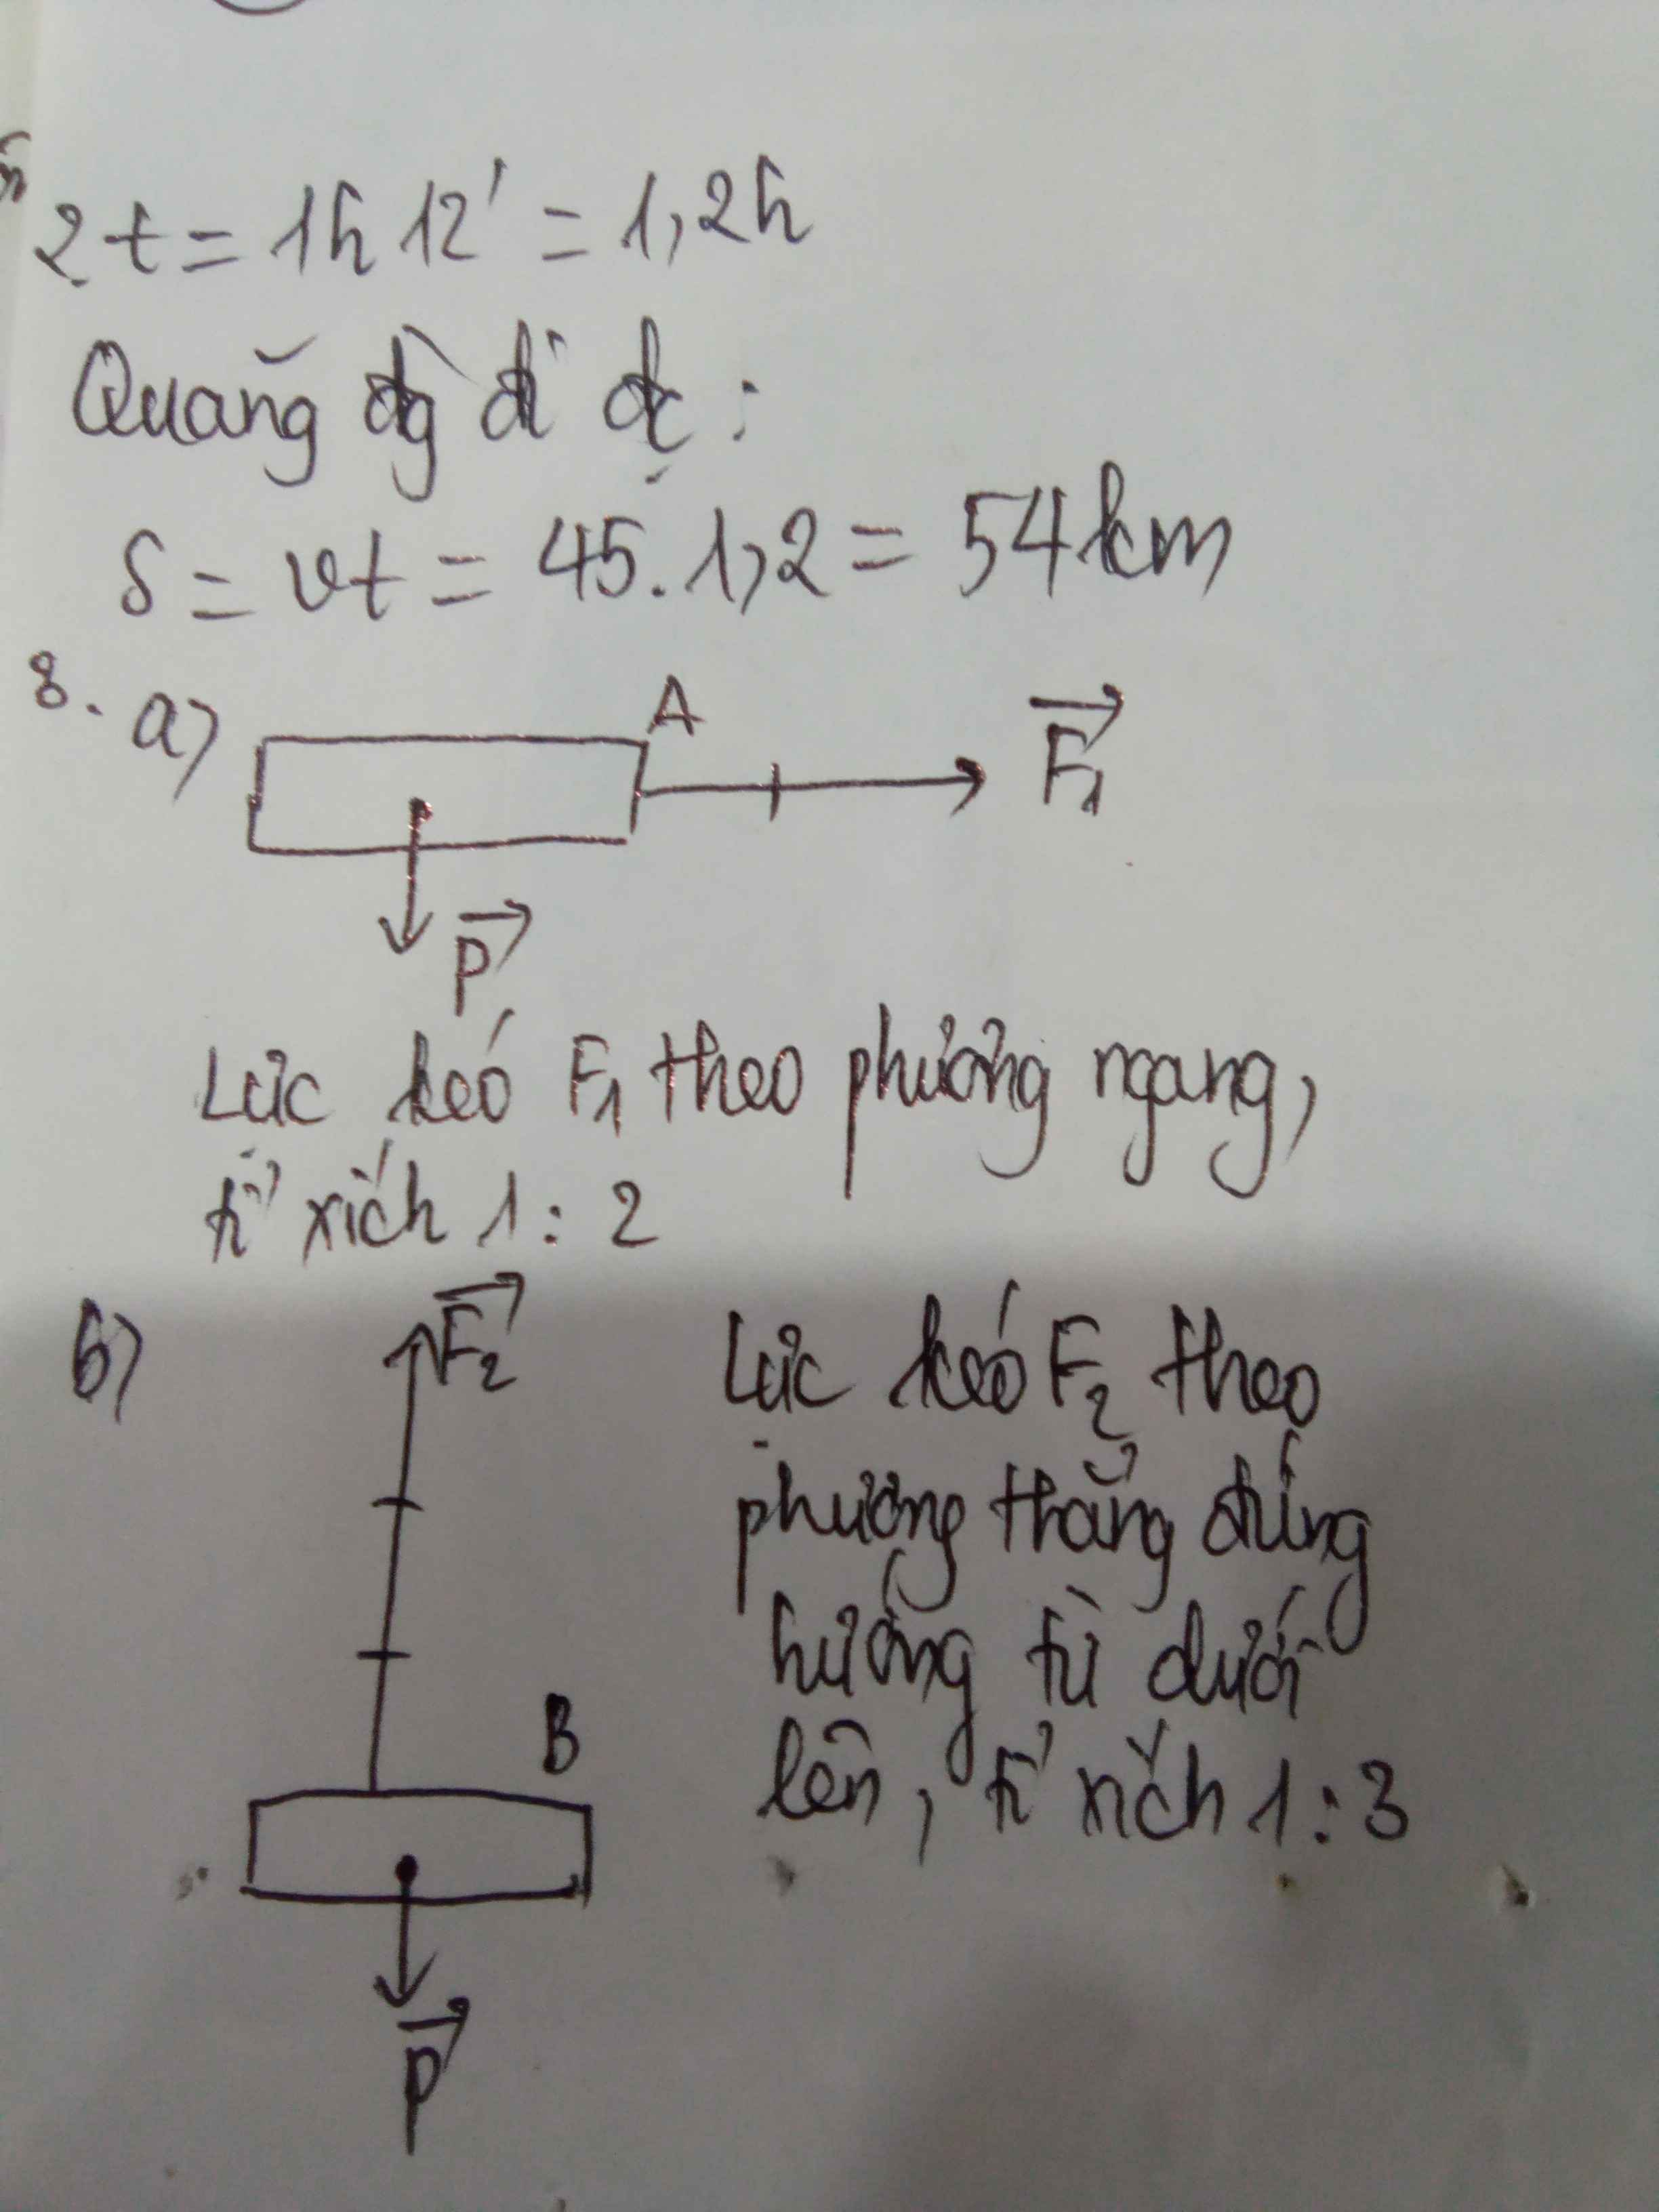 2 t = 1h 12' = 1,2h
Quãng đg đi đc :
S = vt = 45. 1,2 = 54km
8. a)
A
F₁
P
Lực kéo F₁ theo phương ngang,
tỉ xích 1 : 2
b)
F₂
Lực kéo F₂ theo
phương thẳng đứng
hướng từ dưới
lên, tỉ xích 1 : 3
B
P